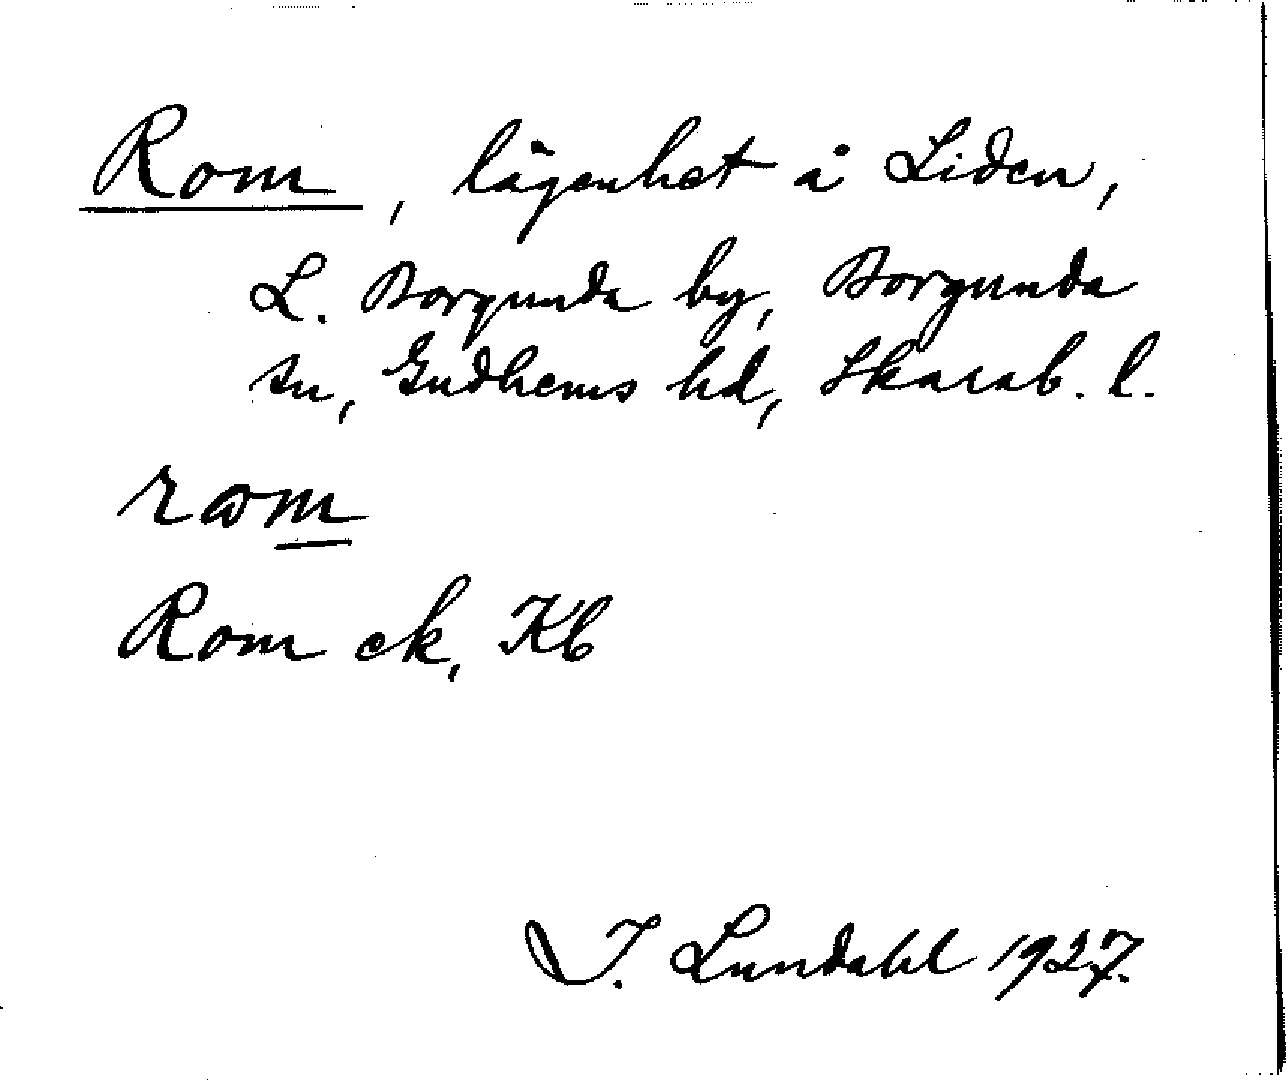 Rom, lägenhet å Liden,
L. Borgunda by, Borgunda
sn, Gudhems hd, Skarab. l.
rom
Rom ck, Kb
I. Lundahl 1927.